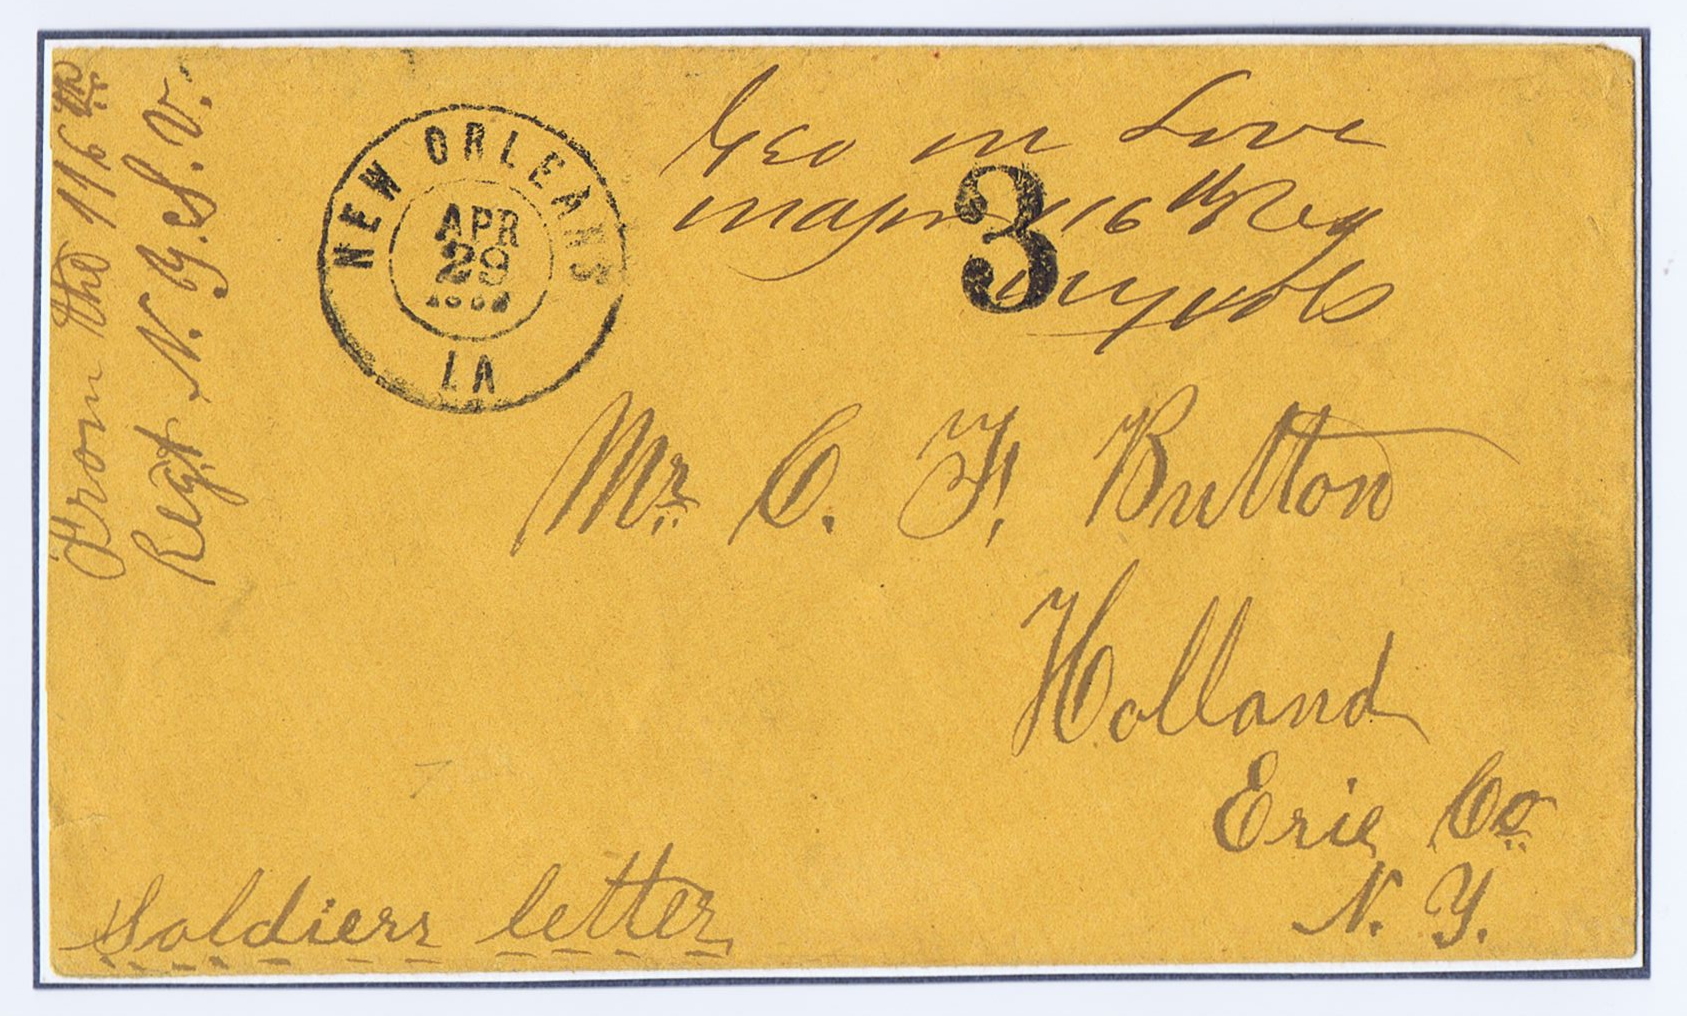 From the 116th
Regt N.Y.S.V.
NEW ORLEANS
APR
29
LA
Geo m Love
Major 116th Reg
nyvols
3
Mr. C. F. Button
Holland
Erie Co.
N. Y.
Soldiers letter